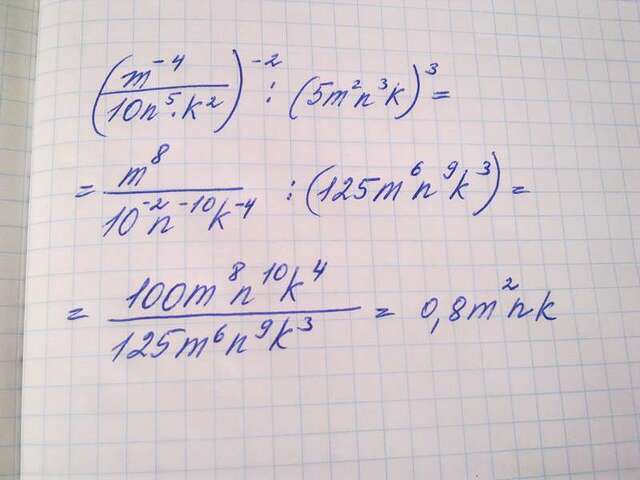 (m⁻⁴/10n⁵·k²)⁻² : (5m²n³k)³ =
= m⁸/10⁻²n⁻¹⁰k⁻⁴ : (125m⁶n⁹k³) =
= 100m⁸n¹⁰k⁴/125m⁶n⁹k³ = 0,8m²nk